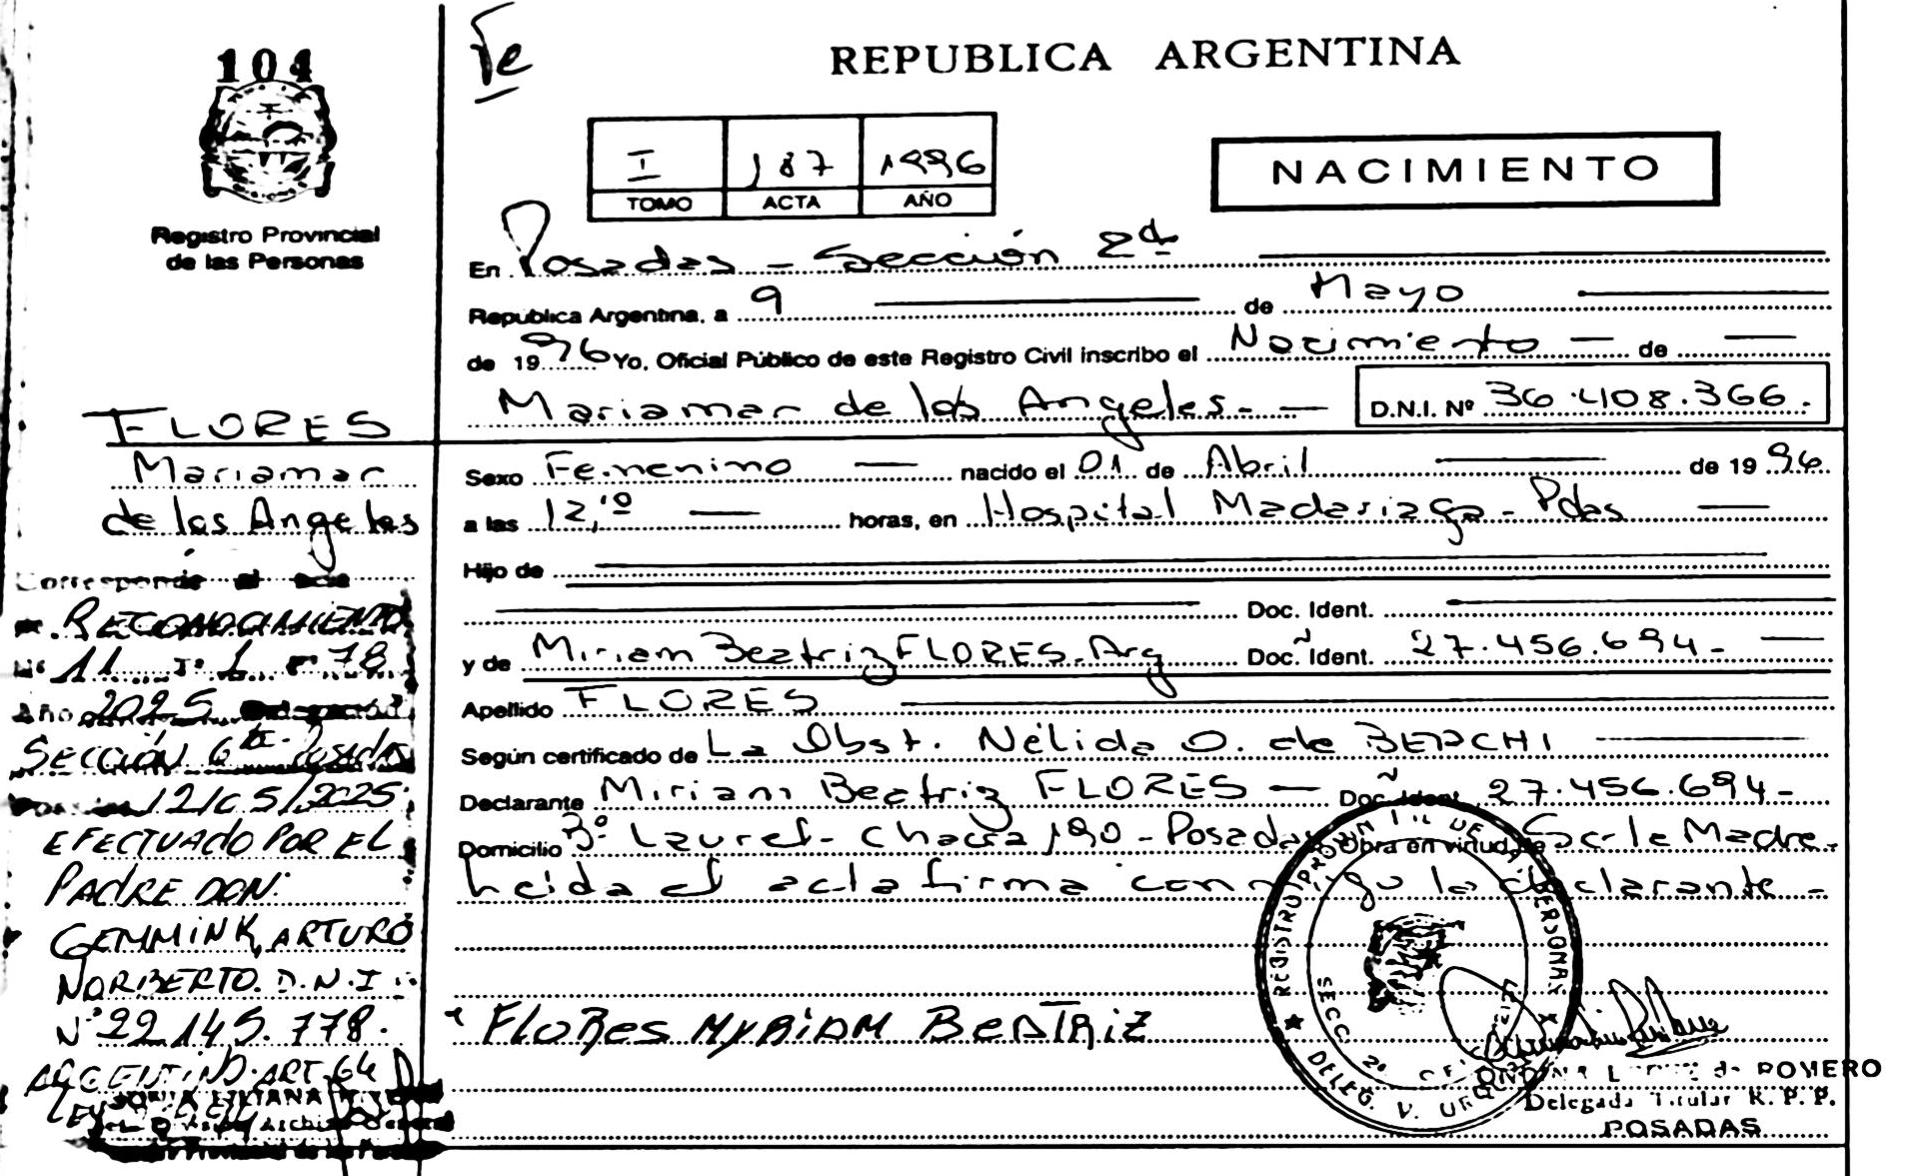 104
Registro Provincial
de las Personas
FLORES
Mariamar
de los Angeles
Corresponde al
RECONOCIMIENTO
Nº 11 Tº 1 Fº 78
Año 2025
SECCIÓN 6ta Posadas
12/05/2025
EFECTUADO POR EL
PADRE DON:
GEMMINK, ARTURO
NORBERTO. D.N.I
Nº 22.145.778.
ARGENTINO. ART. 64
LEY
Fe
REPUBLICA ARGENTINA
I 187 1996
TOMO ACTA AÑO
NACIMIENTO
En Posadas - Sección 2da
Republica Argentina, a 9 de Mayo
de 1996 Yo, Oficial Público de este Registro Civil inscribo el Nacimiento de
Mariamar de los Angeles.- D.N.I. Nº 36.408.366.
Sexo Femenino nacido el 01 de Abril de 1996
a las 12,10 horas, en Hospital Madariaga - Pdas
Hijo de
Doc. Ident.
y de Miriam Beatriz FLORES. Arg Doc. Ident. 27.456.694-
Apellido FLORES
Según certificado de La Obst. Nélida O. de
Declarante Miriam Beatriz FLORES Doc. Ident. 27.456.694-
Domicilio Bº Lauret- Chacra 190 - Posadas Obra en virtud de Ser le Madre.
Leida el acta firma conmigo la declarante -
FLORes MYRIAM BEATRIZ
REGISTRO PROVINCIAL DE LAS PERSONAS
SECC. 2º
DELEG. V. URQUIZA
ROMERO
Delegada Titular R. P. P.
POSADAS